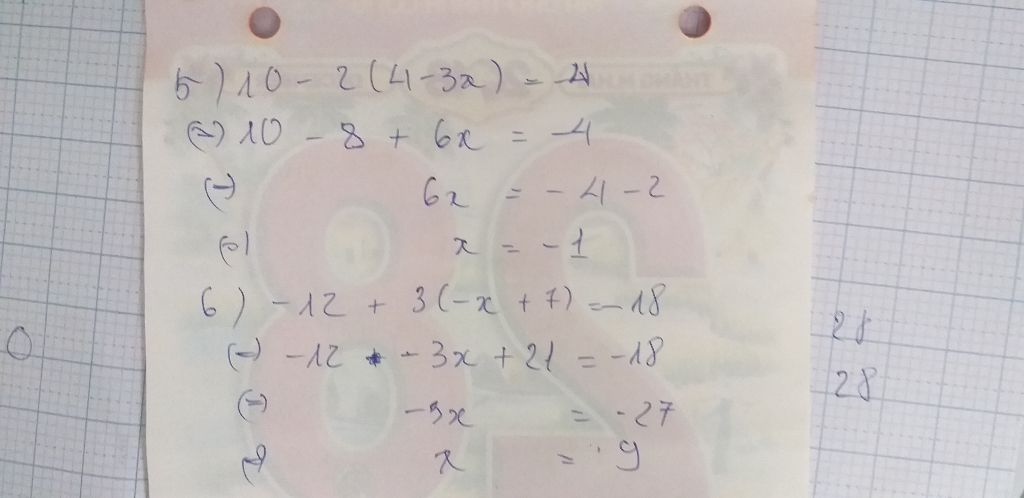 5) 10 - 2(4-3x) = -4
(=) 10 - 8 + 6x = -4
(=) 6x = -4 - 2
(=) x = -1
6) -12 + 3(-x + 7) = -18
(=) -12 - 3x + 21 = -18
(=) -3x = -27
(=) x = 9
28
28